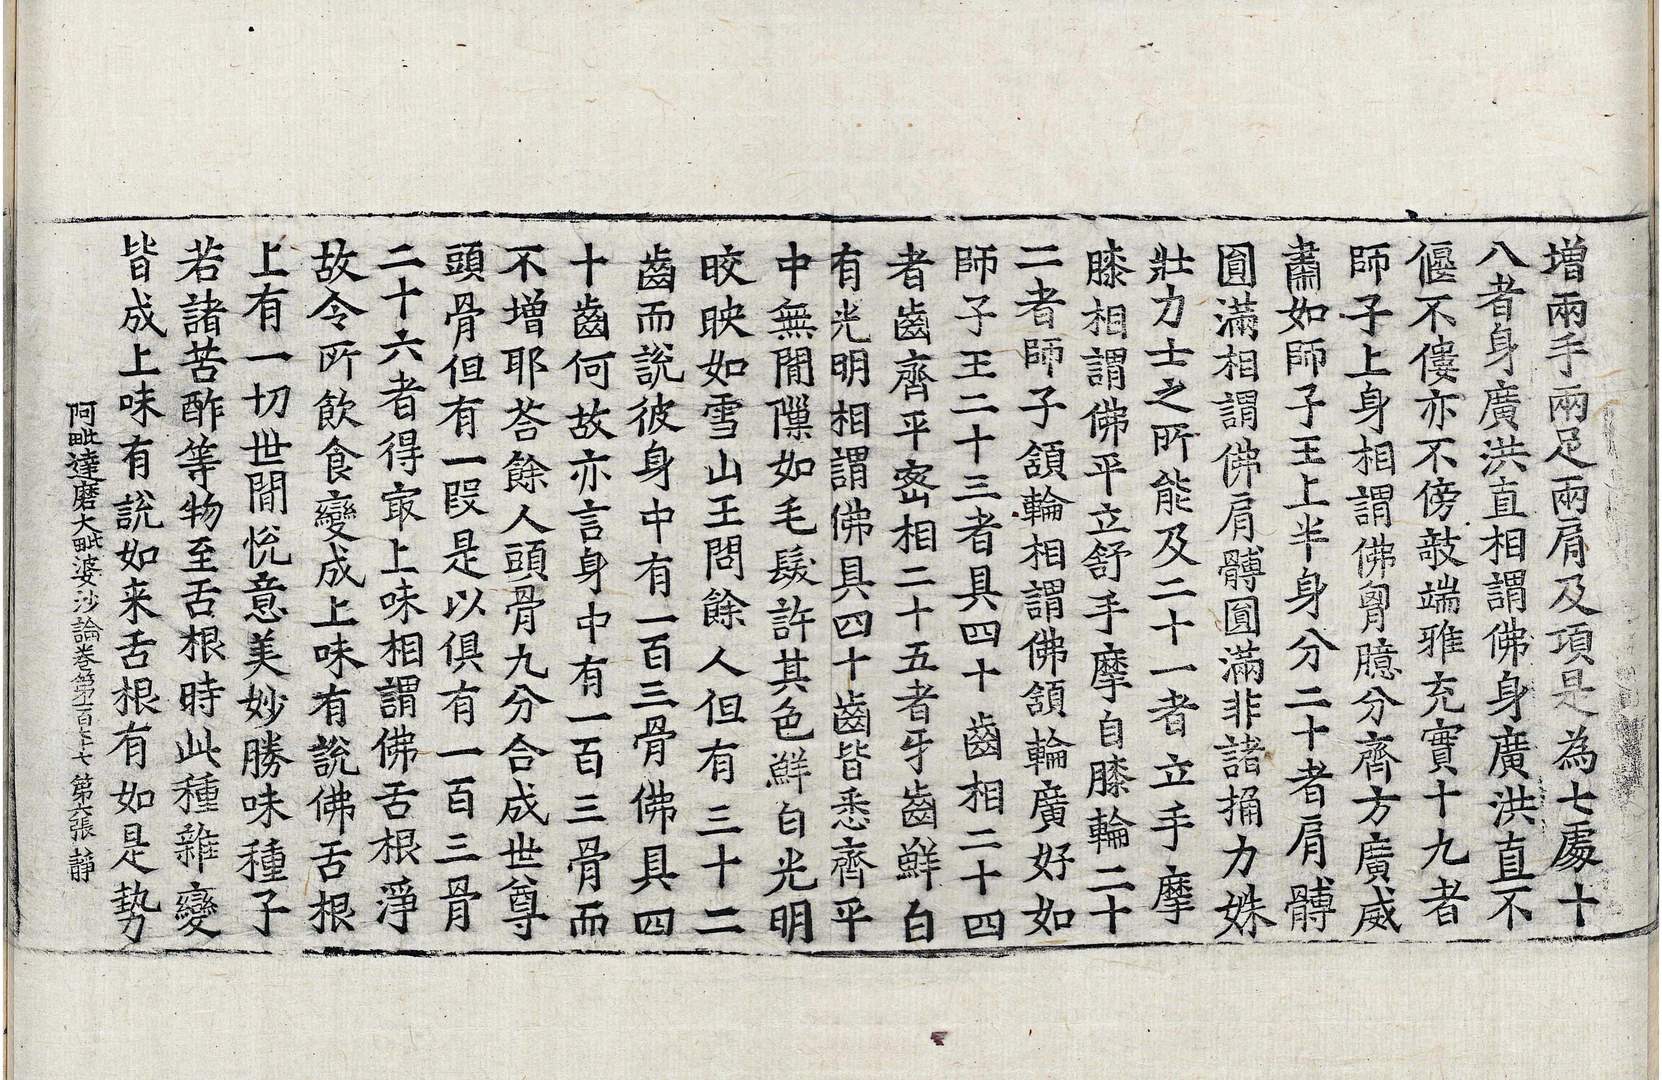 增兩手兩足兩肩及項是為七處十
八者身廣洪直相謂佛身廣洪直不
傴不僂亦不傍攲端雅充實十九者
師子上身相謂佛胷臆分齊方廣威
肅如師子王上半身分二十者肩髆
圎滿相謂佛肩髆圎滿非諸捔力姝
壯力士之所能及二十一者立手摩
膝相謂佛平立舒手摩自膝輪二十
二者師子頷輪相謂佛頷輪廣好如
師子王二十三者具四十齒相二十四
者齒齊平宻相二十五者牙齒鮮白
有光明相謂佛具四十齒皆悉齊平
中無閒隟如毛髮許其色鮮白光明
晈映如雪山王問餘人但有三十二
齒而說彼身中有一百三骨佛具四
十齒何故亦言身中有一百三骨而
不增耶荅餘人頭骨九分合成世尊
頭骨但有一段是以俱有一百三骨
二十六者得㝡上味相謂佛舌根淨
故令所飲食變成上味有說佛舌根
上有一切世閒悅意美妙勝味種子
若諸苦酢等物至舌根時此種雜變
皆成上味有說如来舌根有如是勢
阿毗達磨大毗婆沙論卷第一百七十七 第六張 靜